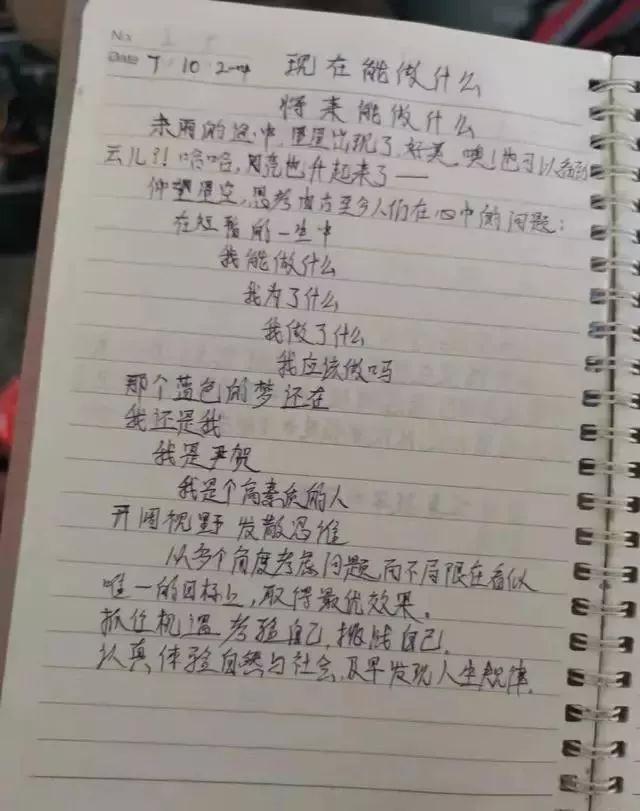 No.
Date 7.10.2004 现在能做什么
将来能做什么
来丽的途中,星星出现了,好美,噢!也可以看到
云儿?!哈哈,月亮也升起来了——
仰望星空,思考由古至今人们在心中的问题:
在短暂的一生中
我能做什么
我为了什么
我做了什么
我应该做吗
那个蓝色的梦还在
我还是我
我是严贺
我是个高素质的人
开阔视野 发散思维
从多个角度考虑问题,而不局限在看似
唯一的目标上,取得最优效果。
抓住机遇 考验自己,挑战自己。
认真体验自然与社会,及早发现人生规律。